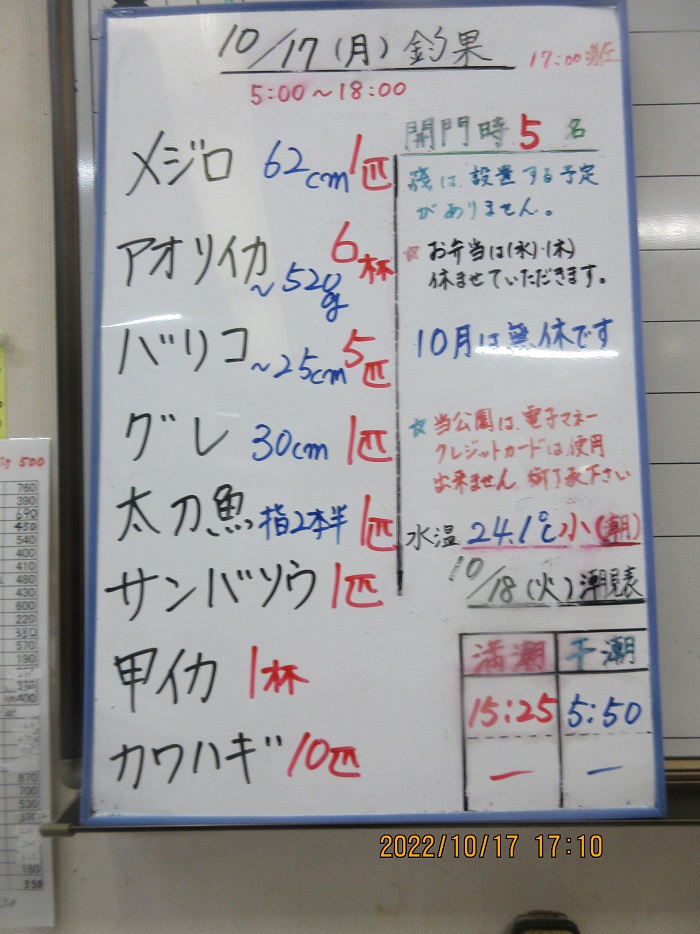 10/17(月)釣果
17:00現在
5:00～18:00
メジロ 62cm 1匹
アオリイカ ～520g 6杯
バリコ ～25cm 5匹
グレ 30cm 1匹
太刀魚 指2本半 1匹
サンバソウ 1匹
甲イカ 1杯
カワハギ 10匹
開門時 5名
筏は、設置する予定
がありません。
☆お弁当は(水)・(木)
休ませていただきます。
10月は無休です
☆当公園は、電子マネー
クレジットカードは使用
出来ません。御了承下さい
水温 24.1℃ 小(潮)
10/18(火)潮見表
満潮 干潮
15:25 5:50
ー ー
500
760
390
690
450
540
400
410
480
430
600
220
330
570
190
400
870
700
530
180
350
2022/10/17 17:10